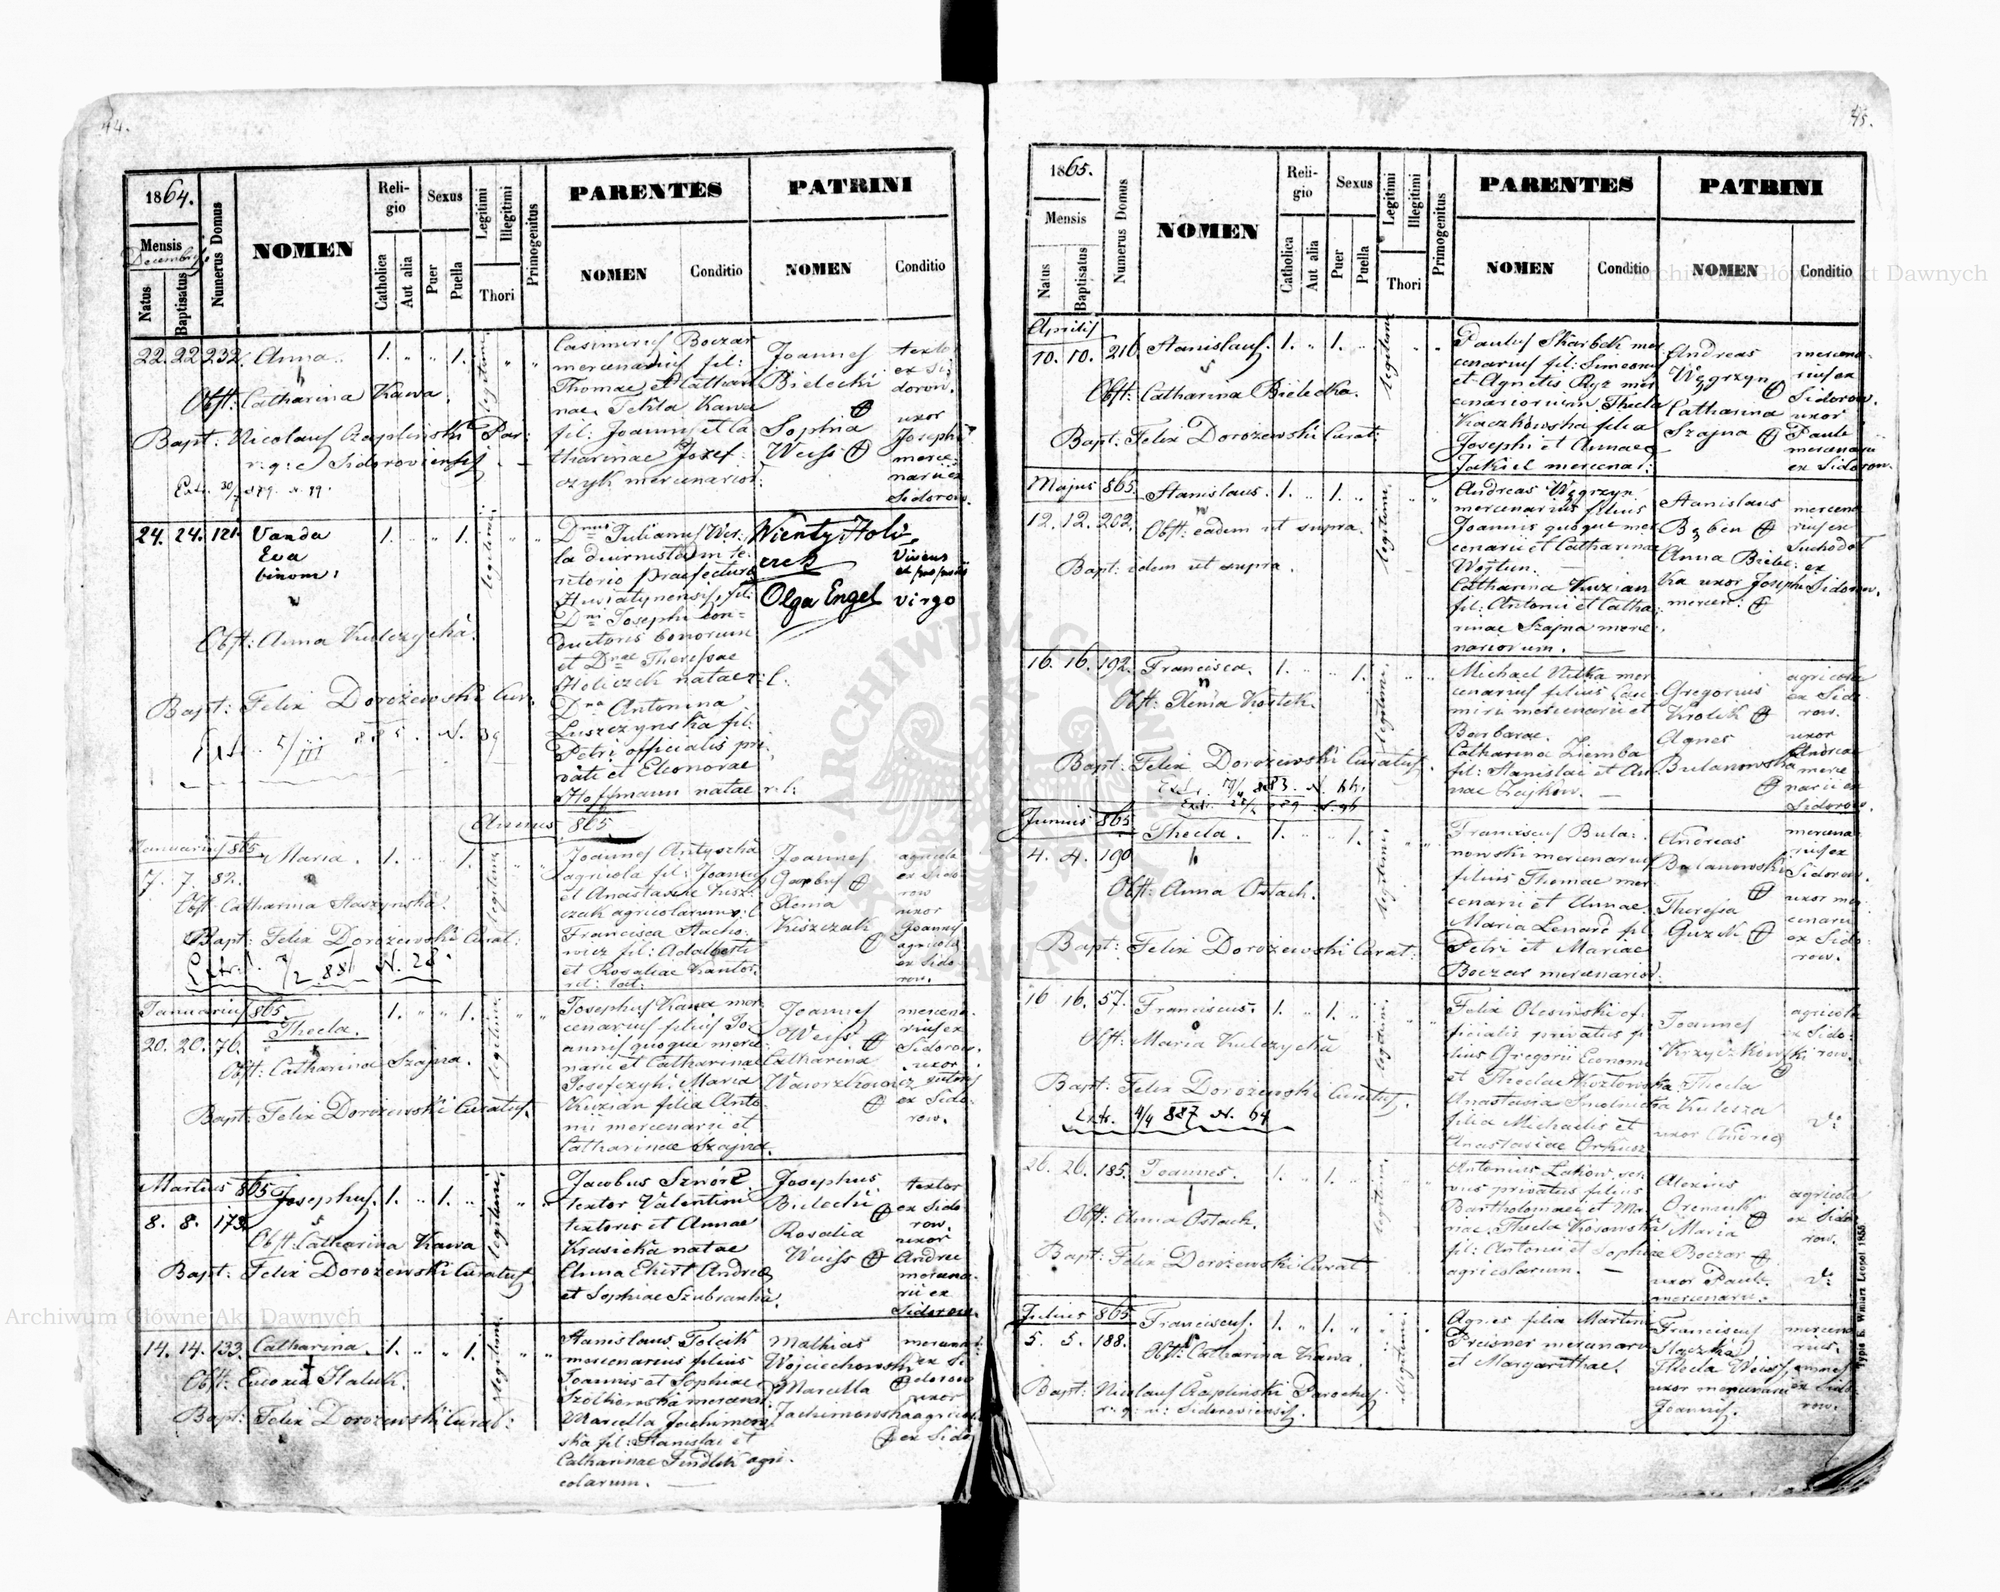 44.
1864.
Mensis
Decembris
Natus
Baptisatus
Numerus Domus
NOMEN
Religio
Catholica
Aut alia
Sexus
Puer
Puella
Legitimi
Illegitimi
Thori
Primogenitus
PARENTES
NOMEN
Conditio
PATRINI
NOMEN
Conditio
22. 22. 232. Anna. 1. " " 1. legitimi " "
Obst: Catharina Kawa.
Bapt: Nicolaus Czapliński Par:
r: g: c: Sidoroviensis
Casimirus Boczar
mercenarius fil:
Thomae et Cathari
nae. Tekla Kawa
fil: Joannis et Ca
tharinae Józef
czyk mercenarior:
Joannes
Bielecki
Sophia
Weiss
textor
ex Si
dorow.
uxor
Josephi
merce
narii ex
Sidorow.
24. 24. 121. Vanda
Eva
binom:
1. " " 1. legitimi " "
Obst: Anna Kulczycka.
Bapt: Felix Dorożewski Cur.
Extr. 5/III 885. N. 39
Dnus Julianus Wes:
la diurnista in te
ritorio Praefectura
Husiatynensis, fil:
Dni Josephi con
ductoris bonorum
et Dnae Theressae
Holiczek natae r: l:
Dna Antonina
Luszczynska fil:
Petri officialis pri
vati et Eleonorae
Hoffmann natae r: l:
Wienty Holi
czek
Olga Engel
virgo
Annus 865.
Januarius 865. Maria. 1. " " 1. legitimi " "
7. 7. 82.
Obst: Catharina Staszynska.
Bapt: Felix Dorożewski Curat:
Extr. d. 7/2 881 N. 28.
Joannes Antyszka
agricola fil: Joannis
Francisca Stacho
wicz fil: Adalberti
et Rosaliae Kantor
rit: lat:
Joannes
Xenia
Kiszczak
agricola
ex Sido
row
uxor
Joannis
agricola
ex Sido
row.
Januarius 865. Thecla. 1. " " 1. legitimi " "
20. 20. 76.
Obst: Catharina Szajna.
Bapt: Felix Dorożewski Curatus.
Josephus Kawa mer
cenarius filius Jo
annis quoque merce
narii et Catharinae
Josefczyk. Maria
Kuzian filia Anto
nii mercenarii et
Catharinae Szajna.
Joannes
Weiss
Catharina
mercena
rius ex
Sidorow.
uxor
ex Sido
row.
Martius 865. Josephus. 1. " 1. " legitimi " "
8. 8. 173.
Obst: Catharina Kawa
Bapt: Felix Dorożewski Curatus
Jacobus Szwóre
textor Valentini
textoris et Annae
Krasicka natae
Anna Ekiert Andrea
et Sophiae Szubranka.
Josephus
Bielecki
Rosalia
Weiss
textor
ex Sido
row.
uxor
Andrea
mercena
rii ex
Sidorow.
14. 14. 133. Catharina. 1. " " 1. legitimi " "
Obst: Eudoxia Haluk.
Bapt: Felix Dorożewski Curat:
Stanislaus Tolcik
mercenarius filius
Joannis et Sophiae
Marcella Jachimow
ska fil: Stanislai et
Catharinae Fendlik agri
colarum.
Mathias
Wojciechowski
Marcella
Jachimowska
mercenar:
ex Si
dorow
uxor
agricol
ex Sido
45.
1865.
Mensis
Natus
Baptisatus
Numerus Domus
NOMEN
Religio
Catholica
Aut alia
Sexus
Puer
Puella
Legitimi
Illegitimi
Thori
Primogenitus
PARENTES
NOMEN
Conditio
PATRINI
NOMEN
Conditio
Aprilis
10. 10. 216. Stanislaus. 1. " 1. " legitimi " "
Obst: Catharina Bielecka.
Bapt: Felix Dorożewski Curat:
Paulus Skarbek mer
cenarius fil: Simeonis
et Agnetis Ryz mer
cenariorum. Thecla
Kaczkowska filia
Josephi et Annae
Jakiel mercenar:
Andreas
Węgrzyn
Catharina
Szajna
mercena
rius ex
Sidorow.
uxor
Pauli
mercenarii
ex Sidorow.
Majus 865. Stanislaus. 1. " 1. " legitimi " "
12. 12. 202. Obst: eadem ut supra.
Bapt: idem ut supra.
Andreas Węgrzyn
mercenarius filius
Joannis quoque mer
cenarii et Catharinae
Wojtun.
Catharina Kuzian
fil: Antonii et Catha
rinae Szajna merce
nariorum.
Stanislaus
Anna Biele:
cka uxor Josephi
mercen:
mercena
rius ex
Suchodol
ex
Sidorow.
16. 16. 192. Francisca. 1. " " 1. legitimi " "
Obst: Xenia Kostek.
Bapt: Felix Dorożewski Curatus.
Michael Nitka mer
cenarius filius Casi
miri mercenarii et
Barbarae.
Catharina Ziemba
fil: Stanislai et An
nae Zajkow.
Gregorius
Krolik
Agnes
Bulanowska
agricola
ex Sido
row.
uxor
Andreae
merce
narii ex
Sidorow.
Junius 865. Thecla. 1. " " 1. legitimi " "
4. 4. 190.
Obst: Anna Ostach.
Bapt: Felix Dorożewski Curat:
Franciscus Bula:
nowski mercenarius
filius Thomae mer
cenarii et Annae.
Maria Lenard fil
Petri et Mariae
Boczar mercenarior.
Andreas
Bulanowski
Theressa
mercena
rius ex
Sidorow.
uxor mer
cenarii
ex Sido
row.
16. 16. 57. Franciscus. 1. " 1. " legitimi " "
Obst: Maria Kulczycka
Bapt: Felix Dorożewski Curatus.
Extr. 4/4 887 N. 64
Felix Olesinski of
ficialis privatus fi
lius Gregorii Economi
et Theclae Kozlowska.
Anastasia Smolnicka
filia Michaelis et
Anastasiae
Joannes
Krzyczkowski
Thecla
Kulesza
uxor Andrea
agricola
ex Sido
row.
26. 26. 185. Joannes. 1. " 1. " legitimi " "
Obst: Anna Ostach.
Bapt: Felix Dorożewski Curat
Antonius ser
vus privatus filius
Bartholomaei et Ma
Thecla Kosowska
fil: Antonii et Sophiae
agricolarum.
Alexius
Maria
Boczar
uxor Pauli
mercenarii.
agricola
ex Sido
row.
Julius 865. Franciscus. 1. " 1. " illegitimi
5. 5. 188.
Obst: Catharina Kawa.
Bapt: Nicolaus Czapliński Parochus
r: g: c: Sidoroviensis.
Agnes filia Martini
Preisner mercenarii
et Margarithae.
Franciscus
Thecla Weiss
uxor mercenarii
Joannis.
mercena
rius.
ex Sido
row.
Typis E. Winiarz Leopol 1855.
ARCHIWUM GŁÓWNE AKT DAWNYCH
Archiwum Główne Akt Dawnych
Archiwum Główne Akt Dawnych